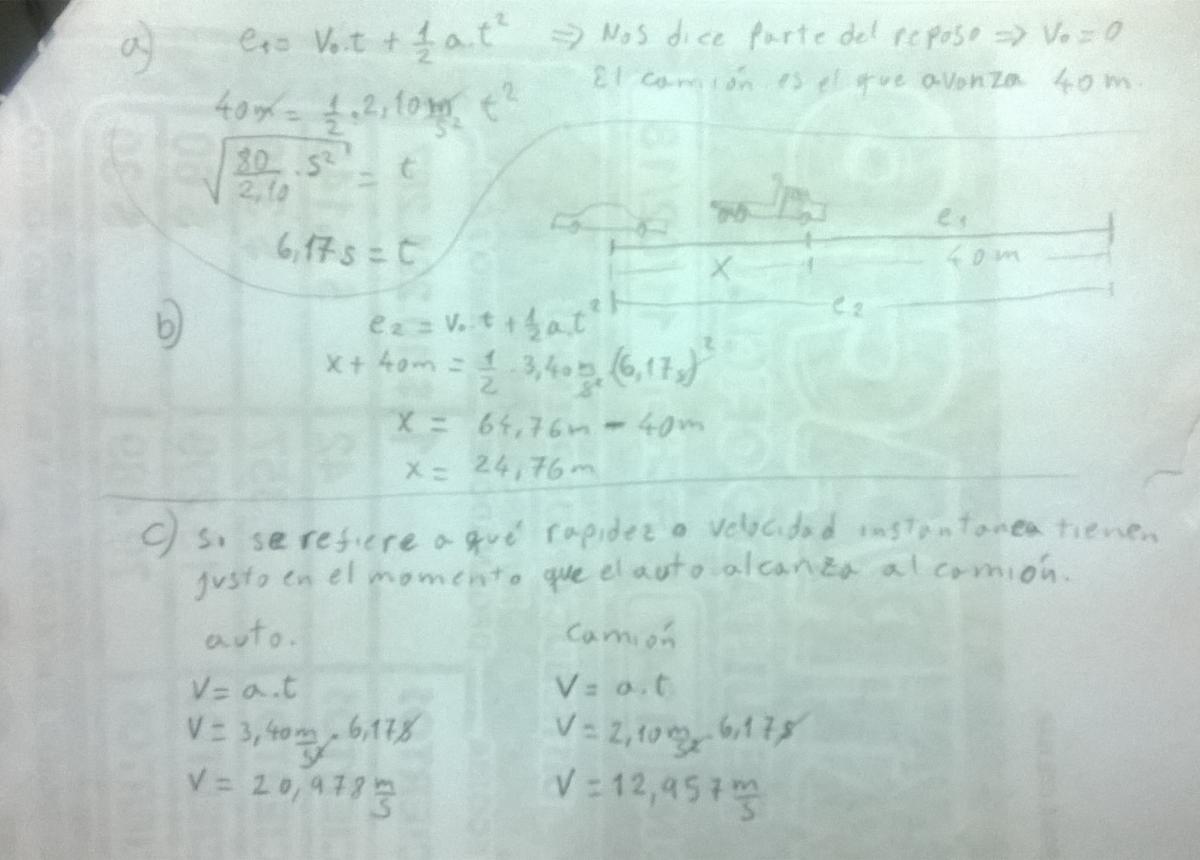 a) e₁ = V₀.t + 1/2 a.t² ⇒ Nos dice Parte del reposo ⇒ V₀ = 0
El camión es el que avanza 40 m.
40m = 1/2 . 2,10 m/s² t²
√(80/2,10 . s²) = t
6,17 s = t
e₁
x 40 m
e₂
b) e₂ = V₀.t + 1/2 a.t²
x + 40m = 1/2 . 3,40 m/s² (6,17s)²
x = 64,76m - 40m
x = 24,76m
c) Si se refiere a qué rapidez o velocidad instantanea tienen
justo en el momento que el auto alcanza al camión.
auto. Camión
V = a.t V = a.t
V = 3,40 m/s² . 6,17s V = 2,10 m/s² . 6,17s
V = 20,978 m/s V = 12,957 m/s